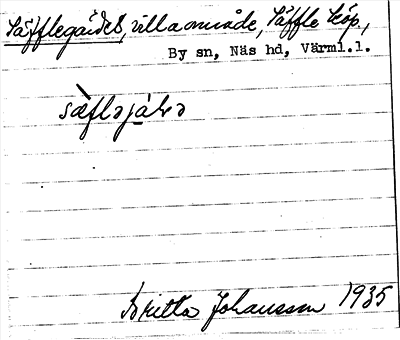 Säfflegärdet, villaområde, Säffle köp,
By sn, Näs hd, Värml.l.
Britta Johansson 1935